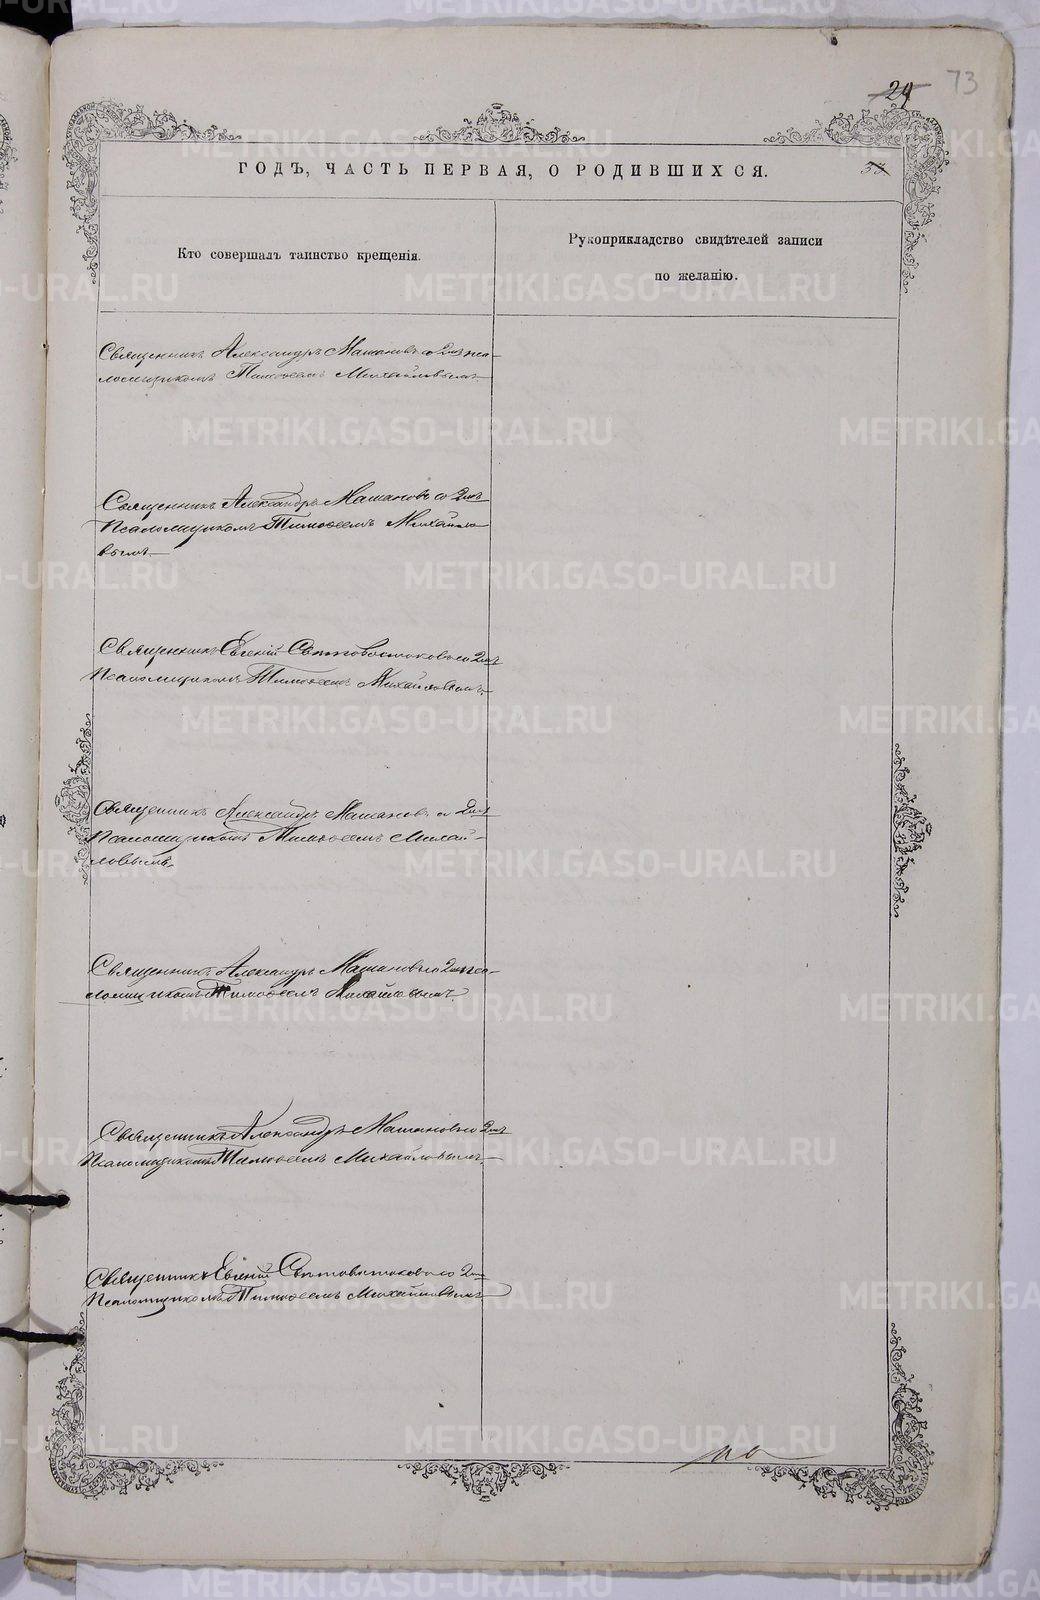 24 73
ГОДЪ, ЧАСТЬ ПЕРВАЯ, О РОДИВШИХСЯ. 53
Кто совершалъ таинство крещенія.
Рукоприкладство свидѣтелей записи
по желанію.
Священникъ Александръ Машановъ со 2мъ пса-
ломщикомъ Тимоѳеемъ Михайловымъ.
Священникъ Александръ Машановъ со 2мъ
Псаломщикомъ Тимоѳеемъ Михайло
вымъ.
Священникъ Евгеній Свѣтовостоковъ со 2мъ
Псаломщикомъ Тимоѳеемъ Михайловымъ.
Священникъ Александръ Машановъ со 2мъ
Псаломщикомъ Тимоѳеемъ Михай-
ловымъ.
Священникъ Александръ Машановъ со 2мъ пса-
ломщикомъ Тимоѳеемъ Михайловымъ.
Священникъ Александръ Машановъ со 2мъ
Псаломщикомъ Тимоѳеемъ Михайловымъ.
Священникъ Евгеній Свѣтовостоковъ со 2мъ
Псаломщикомъ Тимоѳеемъ Михайловымъ
METRIKI.GASO-URAL.RU